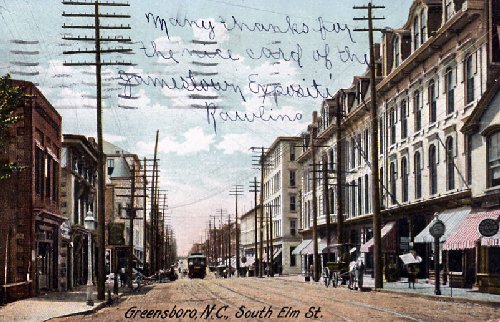 Many thanks for
the nice card of the
Jamestown Expositi
Rawlins
Greensboro, N.C., South Elm St.